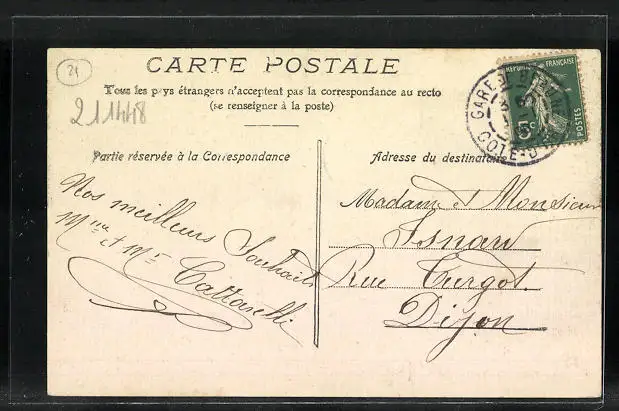 21
CARTE POSTALE
Tous les pays étrangers n'acceptent pas la correspondance au recto
(se renseigner à la poste)
211448
RÉPUBLIQUE FRANÇAISE
POSTES
5
GARE DE
COTE-D'
Partie réservée à la Correspondance
Nos meilleurs Souhaits
Mme et Mr
Adresse du destinataire
Madame et Monsieur
Isnard
Rue Turgot.
Dijon